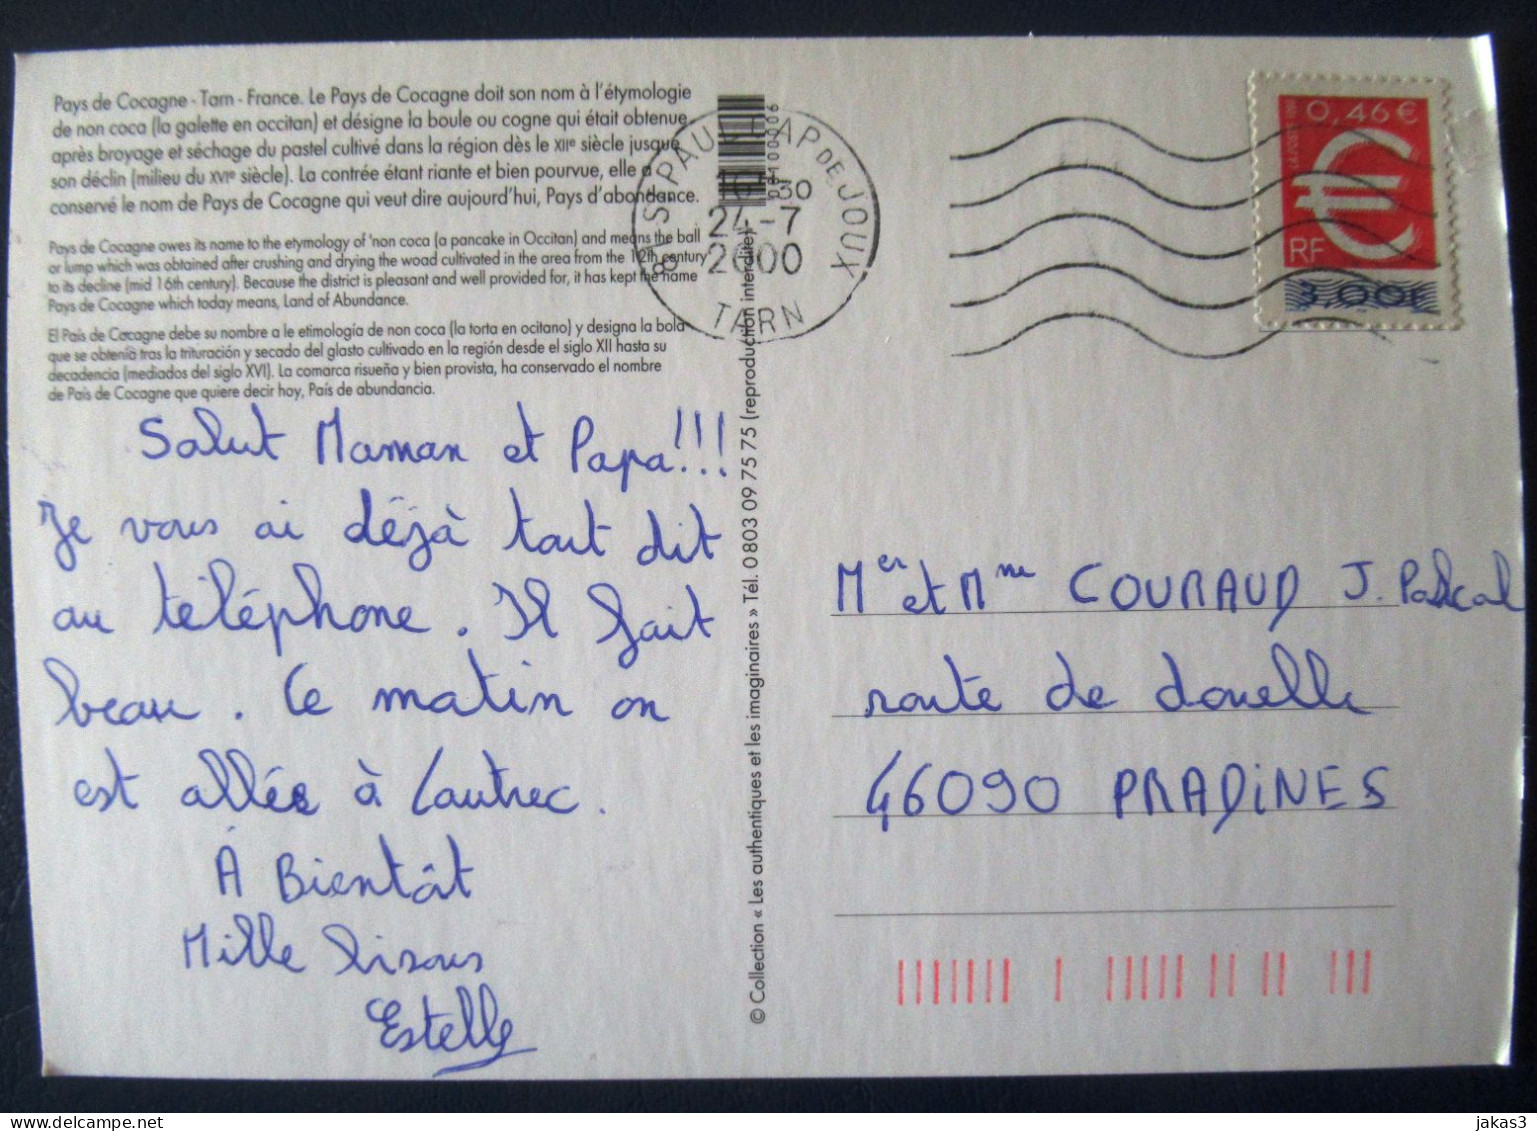 Pays de Cocagne - Tarn - France. Le Pays de Cocagne doit son nom à l'étymologie
de non coca (la galette en occitan) et désigne la boule ou cogne qui était obtenue
après broyage et séchage du pastel cultivé dans la région dès le XIIe siècle jusque
son déclin (milieu du XVIe siècle). La contrée étant riante et bien pourvue, elle a
conservé le nom de Pays de Cocagne qui veut dire aujourd'hui, Pays d'abondance.
Pays de Cocagne owes its name to the etymology of 'non coca (a pancake in Occitan) and means the ball
or lump which was obtained after crushing and drying the woad cultivated in the area from the 12th century
to its decline (mid 16th century). Because the district is pleasant and well provided for, it has kept the name
Pays de Cocagne which today means, Land of Abundance.
El País de Cocagne debe su nombre a le etimología de non coca (la torta en ocitano) y designa la bola
que se obtenía tras la trituración y secado del glasto cultivado en la región desde el siglo XII hasta su
decadencia (mediados del siglo XVI). La comarca risueña y bien provista, ha conservado el nombre
de País de Cocagne que quiere decir hoy, País de abundancia.
Salut Maman et Papa!!!
Je vous ai déjà tout dit
au téléphone. Il fait
beau. Ce matin on
est allée à Lautrec.
A Bientôt
Mille bisous
Estelle
© Collection « Les authentiques et les imaginaires » Tél. 0 803 09 75 75 (reproduction interdite)
81 ST PAUL CAP DE JOUX
24-7
2000
TARN
0,46€
RF
3,00F
Mer et Mme COURAUD J. Pascal
route de douelle
46090 PRADINES
jakas3